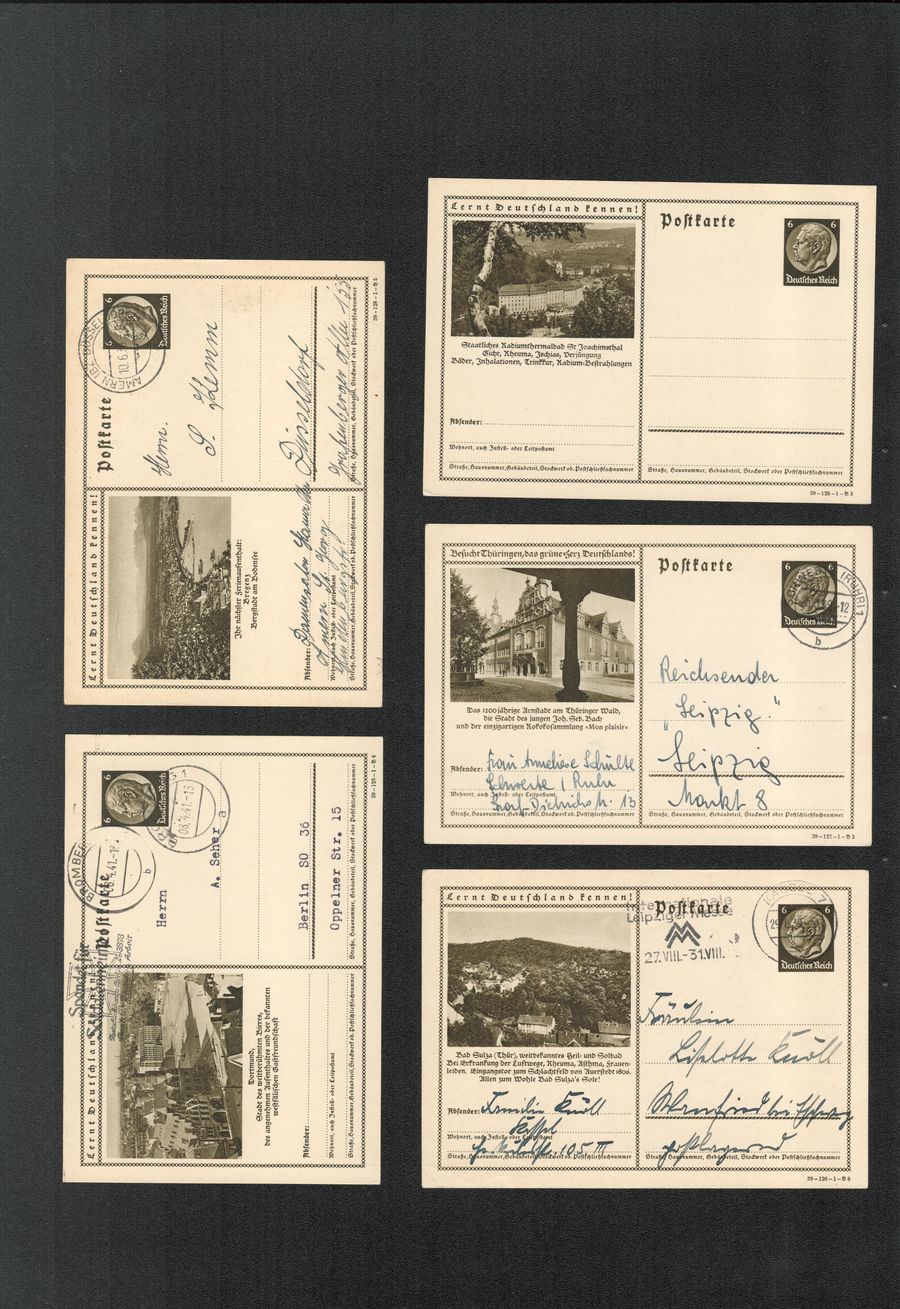 Lernt Deutschland kennen!
Postkarte
6 6
Deutsches Reich
Herrn.
Düsseldorf
Grafenberger Allee 133
Straße, Hausnummer, Gebäudeteil, Stockwerk od. Postschließfachnummer
39-128-1-B 5
Ihr nächster Ferienaufenthalt:
Bregenz
Bergstadt am Bodensee
Absender:
Wohnort, auch Zustell- oder Leitpostamt
Straße, Hausnummer, Gebäudeteil, Stockwerk od. Postschließfachnummer
Lernt Deutschland kennen!
Postkarte
6 6
Deutsches Reich
BROMBERG
06.4.41.-18
b
06.4.41.-18
a
Herrn
A. Seher
Berlin SO 36
Oppelner Str. 15
Straße, Hausnummer, Gebäudeteil, Stockwerk od. Postschließfachnummer
39-128-1-B 4
Dortmund,
Stadt des weltberühmten Bieres,
des angenehmen Aufenthaltes und der bekannten
westfälischen Gastfreundschaft
Absender:
Wohnort, auch Zustell- oder Leitpostamt
Straße, Hausnummer, Gebäudeteil, Stockwerk od. Postschließfachnummer
Lernt Deutschland kennen!
Postkarte
6 6
Deutsches Reich
Staatliches Radiumthermalbad St Joachimsthal
Gicht, Rheuma, Ischias, Verjüngung
Bäder, Inhalationen, Trinkkur, Radium-Bestrahlungen
Absender:
Wohnort, auch Zustell- od. Leitpostamt
Straße, Hausnummer, Gebäudeteil, Stockwerk od. Postschließfachnummer
Straße, Hausnummer, Gebäudeteil, Stockwerk oder Postschließfachnummer
39-128-1-B 3
Besucht Thüringen, das grüne Herz Deutschlands!
Postkarte
6 6
Deutsches Reich
(RUHR) 1
b
Das 1200 jährige Arnstadt am Thüringer Wald,
die Stadt des jungen Joh. Seb. Bach
und der einzigartigen Rokokosammlung »Mon plaisir«
Reichsender
"Leipzig."
Leipzig
Markt 8
Absender: Frau Anneliese Schülte
Schwerte / Ruhr
Wohnort, auch Zustell- oder Leitpostamt
Graf-Dietrichstr. 13
Straße, Hausnummer, Gebäudeteil, Stockwerk od. Postschließfachnummer
Straße, Hausnummer, Gebäudeteil, Stockwerk oder Postschließfachnummer
39-127-1-B 3
Lernt Deutschland kennen!
Postkarte
Internationale
Leipziger Messe
27.VIII.-31.VIII.
6 6
Deutsches Reich
Bad Sulza (Thür), weitbekanntes Heil- und Solbad
Bei Erkrankung der Luftwege, Rheuma, Asthma, Frauen-
leiden. Eingangstor zum Schlachtfeld von Auerstedt 1806.
Allen zum Wohle Bad Sulza's Sole!
Fräulein
Liselotte Knöll
Wanfried bei Eschweg
postlagernd
Absender: Familie Knöll
Kassel
Wohnort, auch Zustell- oder Leitpostamt
105 III
Straße, Hausnummer, Gebäudeteil, Stockwerk od. Postschließfachnummer
Straße, Hausnummer, Gebäudeteil, Stockwerk oder Postschließfachnummer
39-126-1-B 8